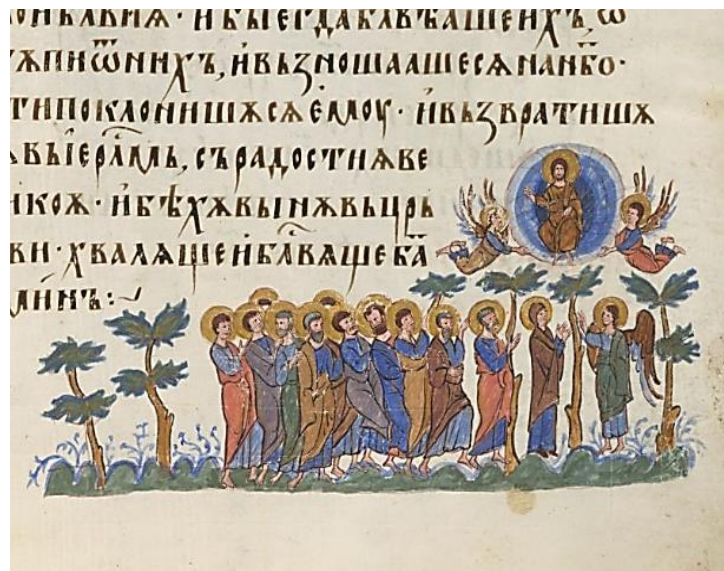 И БЫ ЕГДА БЛ҃ВѢАШЕ И́ХЪ Ѿ
ПИ Ѿ НИХЪ, И́ ВЬЗНОШААШЕ СѦ НА НБ҃О ·
ТИ ПОКЛОНИШѪ СѦ Е́МОУ · И́ ВЬЗВРАТИШѪ
ВЫ ІЕР҃ЛМЬ, СЪ РАДОСТИѪ ВЕ
ИКОѪ · И́ БѢХѪ ВЫНѪ ВЬ ЦРЬ
ВИ · ХВАЛѦЩЕ И́ БЛ҃ВѦЩЕ Б҃А
МИ́НЪ :~